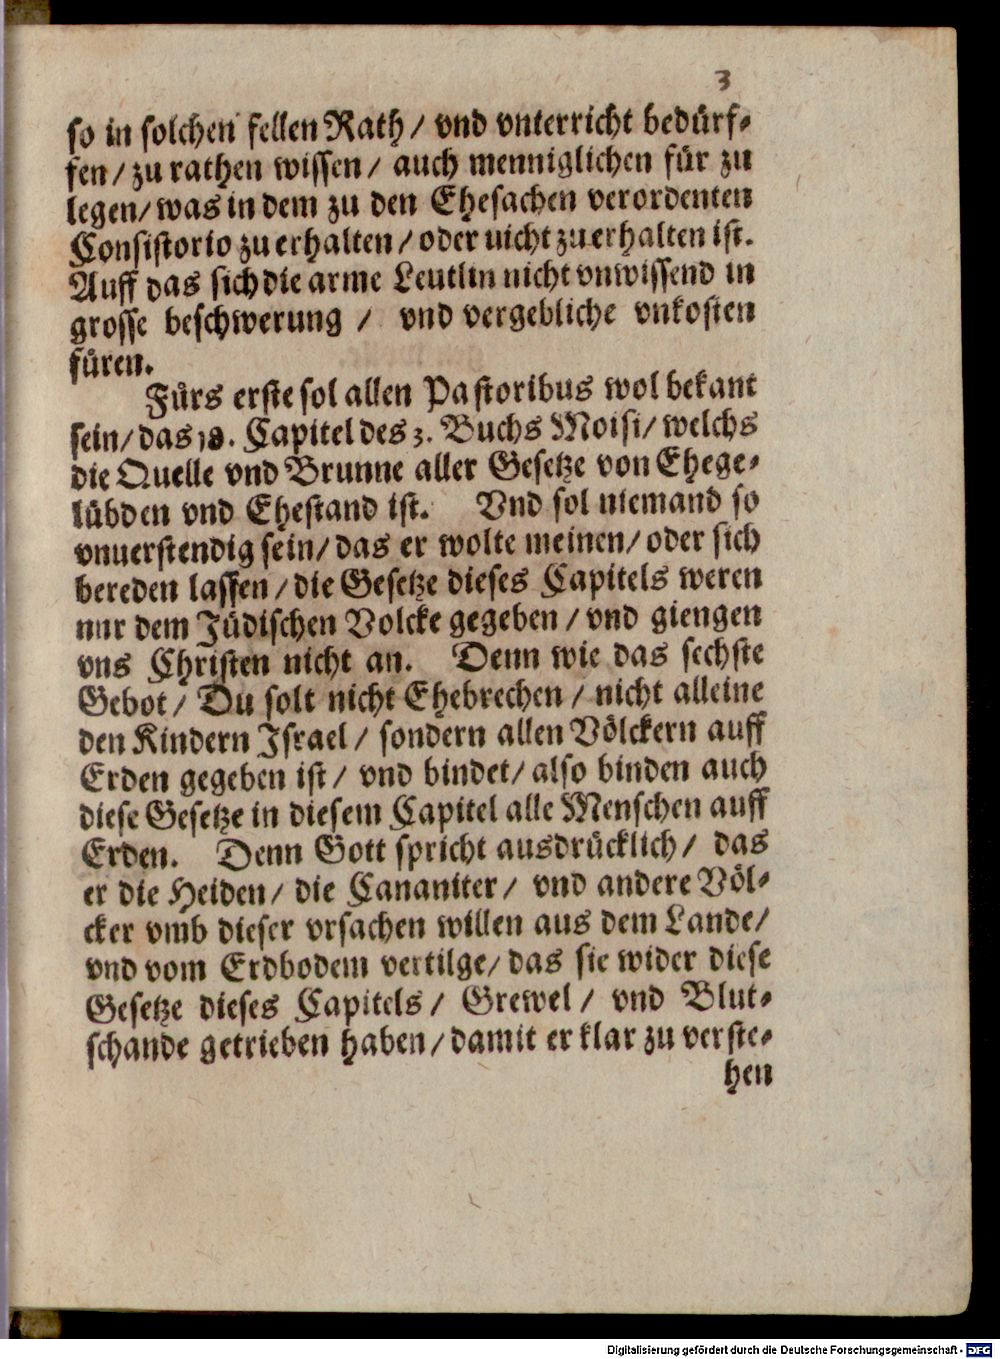 3
so in solchen fellen Rath / vnd vnterricht bedürf-
fen / zu rathen wissen / auch menniglichen für zu
legen / was in dem zu den Ehesachen verordenten
Consistorio zu erhalten / oder nicht zu erhalten ist.
Auff das sich die arme Leutlin nicht vnwissend in
grosse beschwerung / vnd vergebliche vnkosten
füren.
Fürs erste sol allen Pastoribus wol bekant
sein / das 18. Capitel des 3. Buchs Moisi / welchs
die Quelle vnd Brunne aller Gesetze von Ehege-
lübden vnd Ehestand ist. Vnd sol niemand so
vnuerstendig sein / das er wolte meinen / oder sich
bereden lassen / die Gesetze dieses Capitels weren
nur dem Jüdischen Volcke gegeben / vnd giengen
vns Christen nicht an. Denn wie das sechste
Gebot / Du solt nicht Ehebrechen / nicht alleine
den Kindern Israel / sondern allen Völckern auff
Erden gegeben ist / vnd bindet / also binden auch
diese Gesetze in diesem Capitel alle Menschen auff
Erden. Denn Gott spricht ausdrücklich / das
er die Heiden / die Cananiter / vnd andere Völ-
cker vmb dieser vrsachen willen aus dem Lande /
vnd vom Erdbodem vertilge / das sie wider diese
Gesetze dieses Capitels / Grewel / vnd Blut-
schande getrieben haben / damit er klar zu verste-
hen
Digitalisierung gefördert durch die Deutsche Forschungsgemeinschaft - DFG